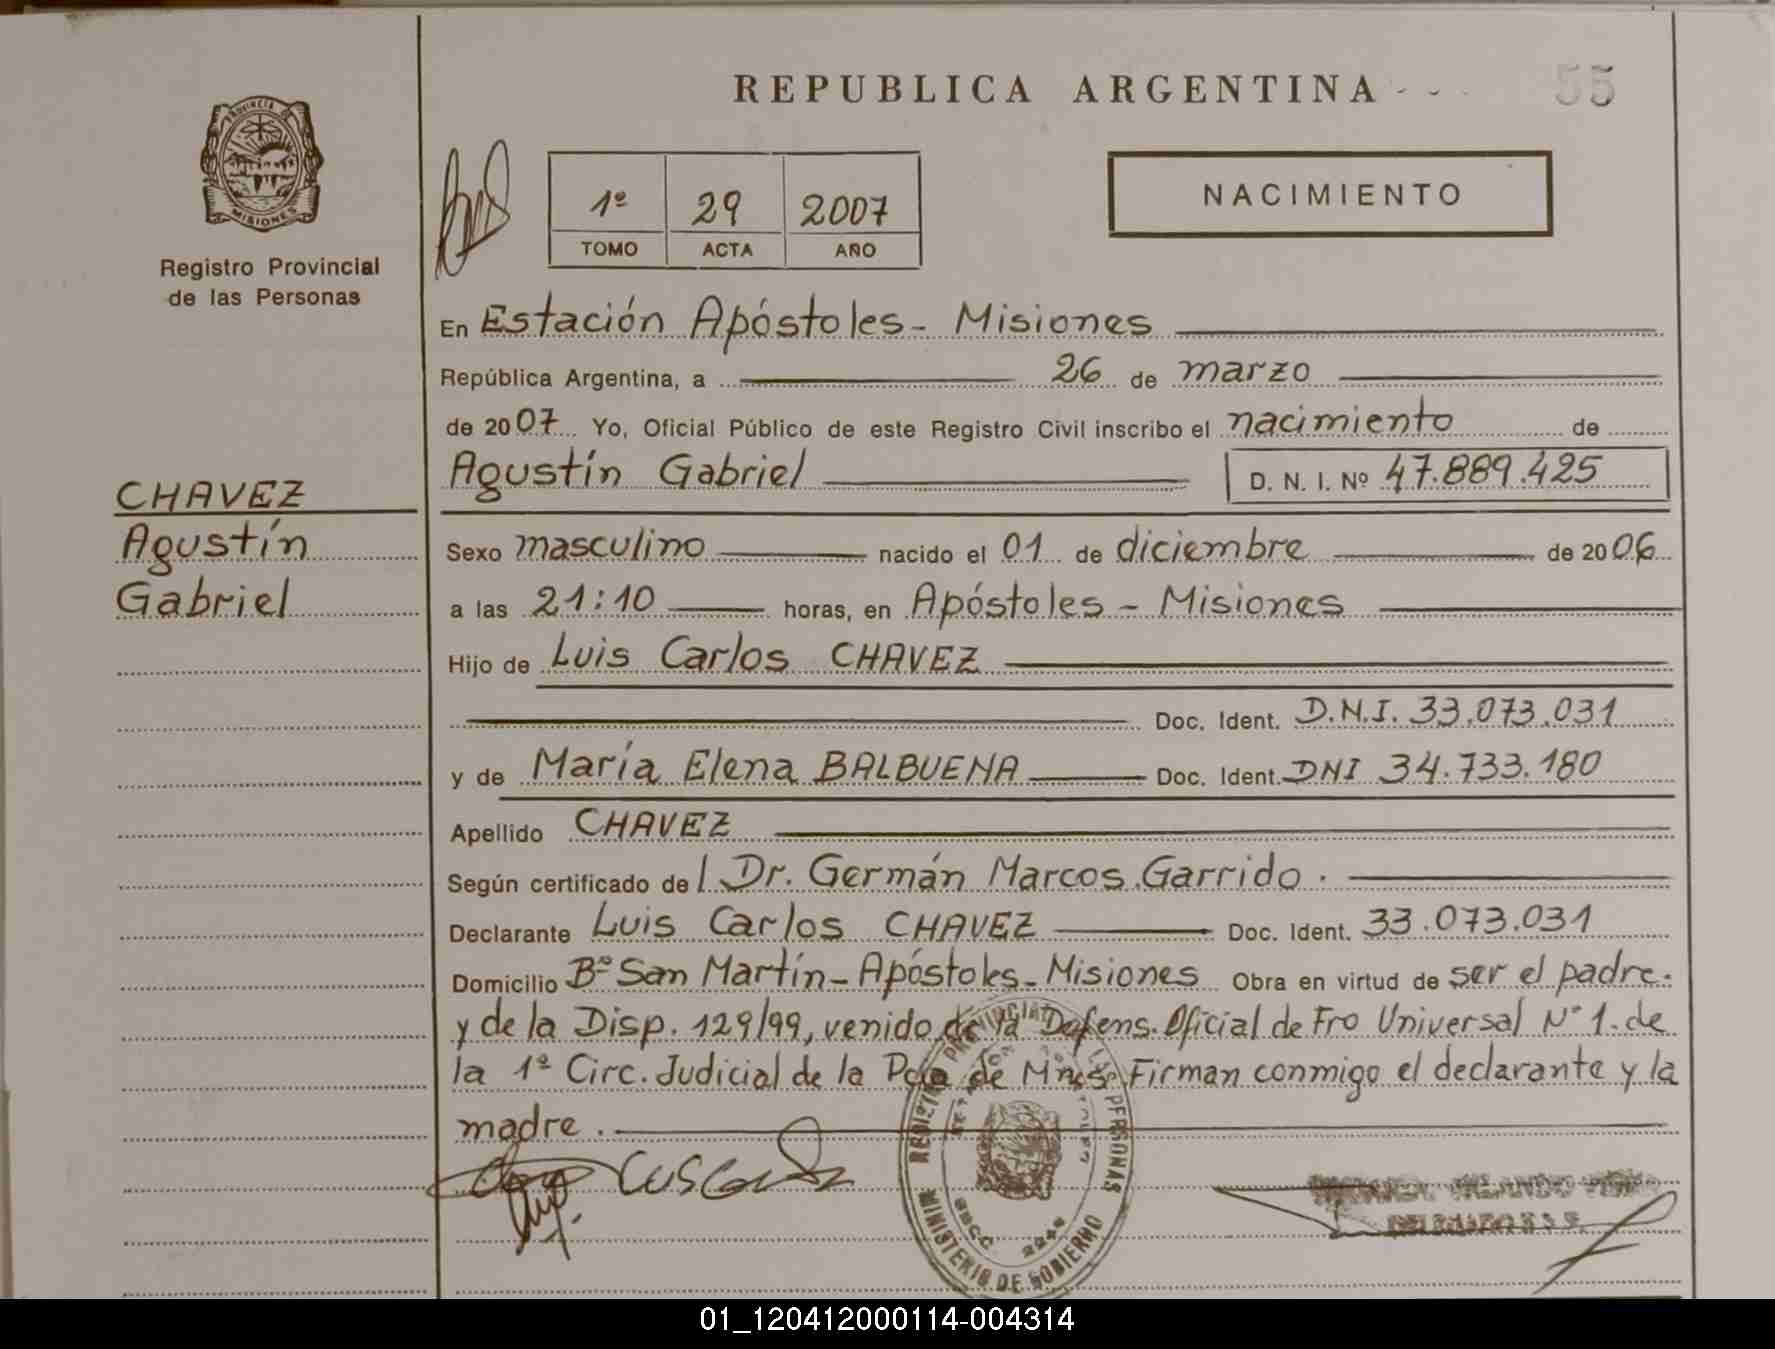 REPUBLICA ARGENTINA
55
PROVINCIA DE
MISIONES
Registro Provincial
de las Personas
1º 29 2007
TOMO ACTA AÑO
NACIMIENTO
En Estación Apóstoles - Misiones
República Argentina, a 26 de marzo
de 2007 Yo, Oficial Público de este Registro Civil inscribo el nacimiento de
Agustín Gabriel D. N. I. Nº 47.889.425
CHAVEZ
Agustín
Gabriel
Sexo masculino nacido el 01 de diciembre de 2006
a las 21:10 horas, en Apóstoles - Misiones
Hijo de Luis Carlos CHAVEZ
Doc. Ident. D.N.I. 33.073.031
y de María Elena BALBUENA Doc. Ident. DNI 34.733.180
Apellido CHAVEZ
Según certificado de Dr. Germán Marcos Garrido.
Declarante Luis Carlos CHAVEZ Doc. Ident. 33.073.031
Domicilio Bº San Martín - Apóstoles - Misiones Obra en virtud de ser el padre.
y de la Disp. 129/99, venido de la Defens. Oficial de Fro Universal Nº 1. de
la 1ª Circ. Judicial de la Pcia de Mnes. Firman conmigo el declarante y la
madre.
REGISTRO PROVINCIAL DE LAS PERSONAS
MINISTERIO DE GOBIERNO
01_120412000114-004314